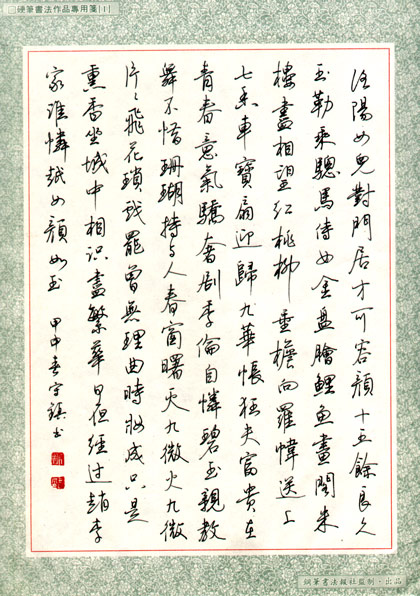 硬筆書法作品專用箋[1]
洛陽女兒對門居才可容顏十五餘良人
玉勒乘驄馬侍女金盤膾鯉魚畫閣朱
樓盡相望紅桃柳垂檐向羅幃送上
七香車寶扇迎歸九華帳狂夫富貴在
青春意氣驕奢劇季倫自憐碧玉親教
舞不惜珊瑚持与人春窗曙灭九微火九微
片片飛花瑣戲罷曾無理曲時妝成只是
熏香坐城中相識盡繁華日夜經過趙李
家誰憐越女顏如玉 甲申春守鎮書
鋼筆書法報社監制·出品